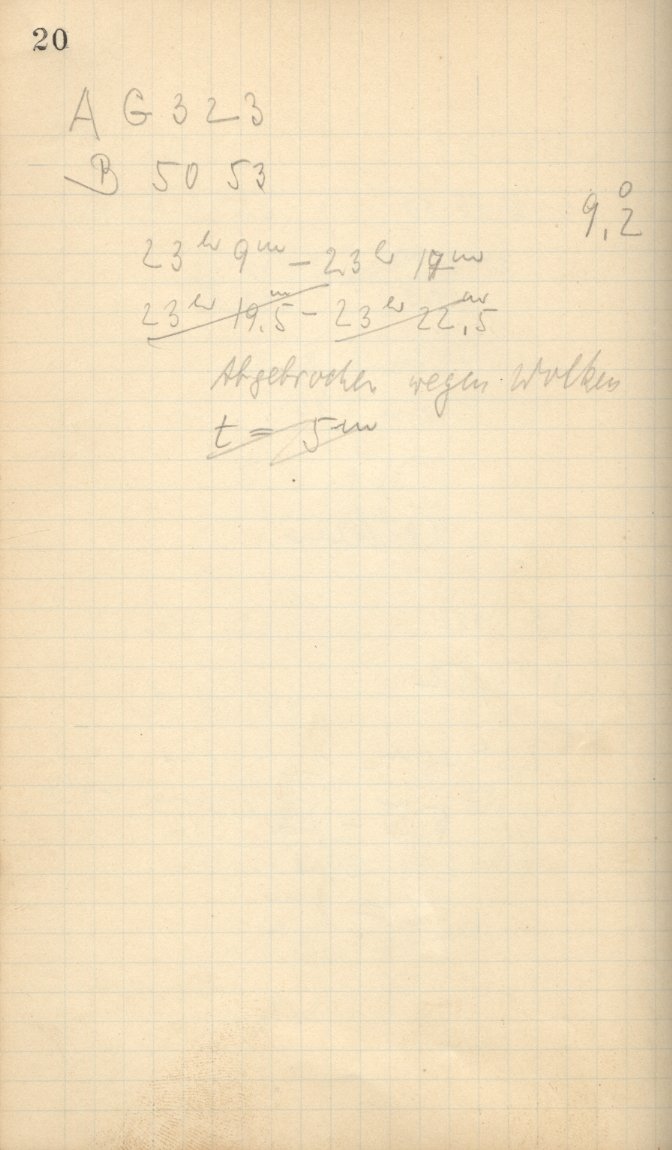 20
A G 323
B 50 53
9,2°
23ʰ 9ᵐ – 23ʰ 17ᵐ
23ʰ 19,5ᵐ – 23ʰ 22,5ᵐ
Abgebrochen wegen Wolken
t = 5ᵐ